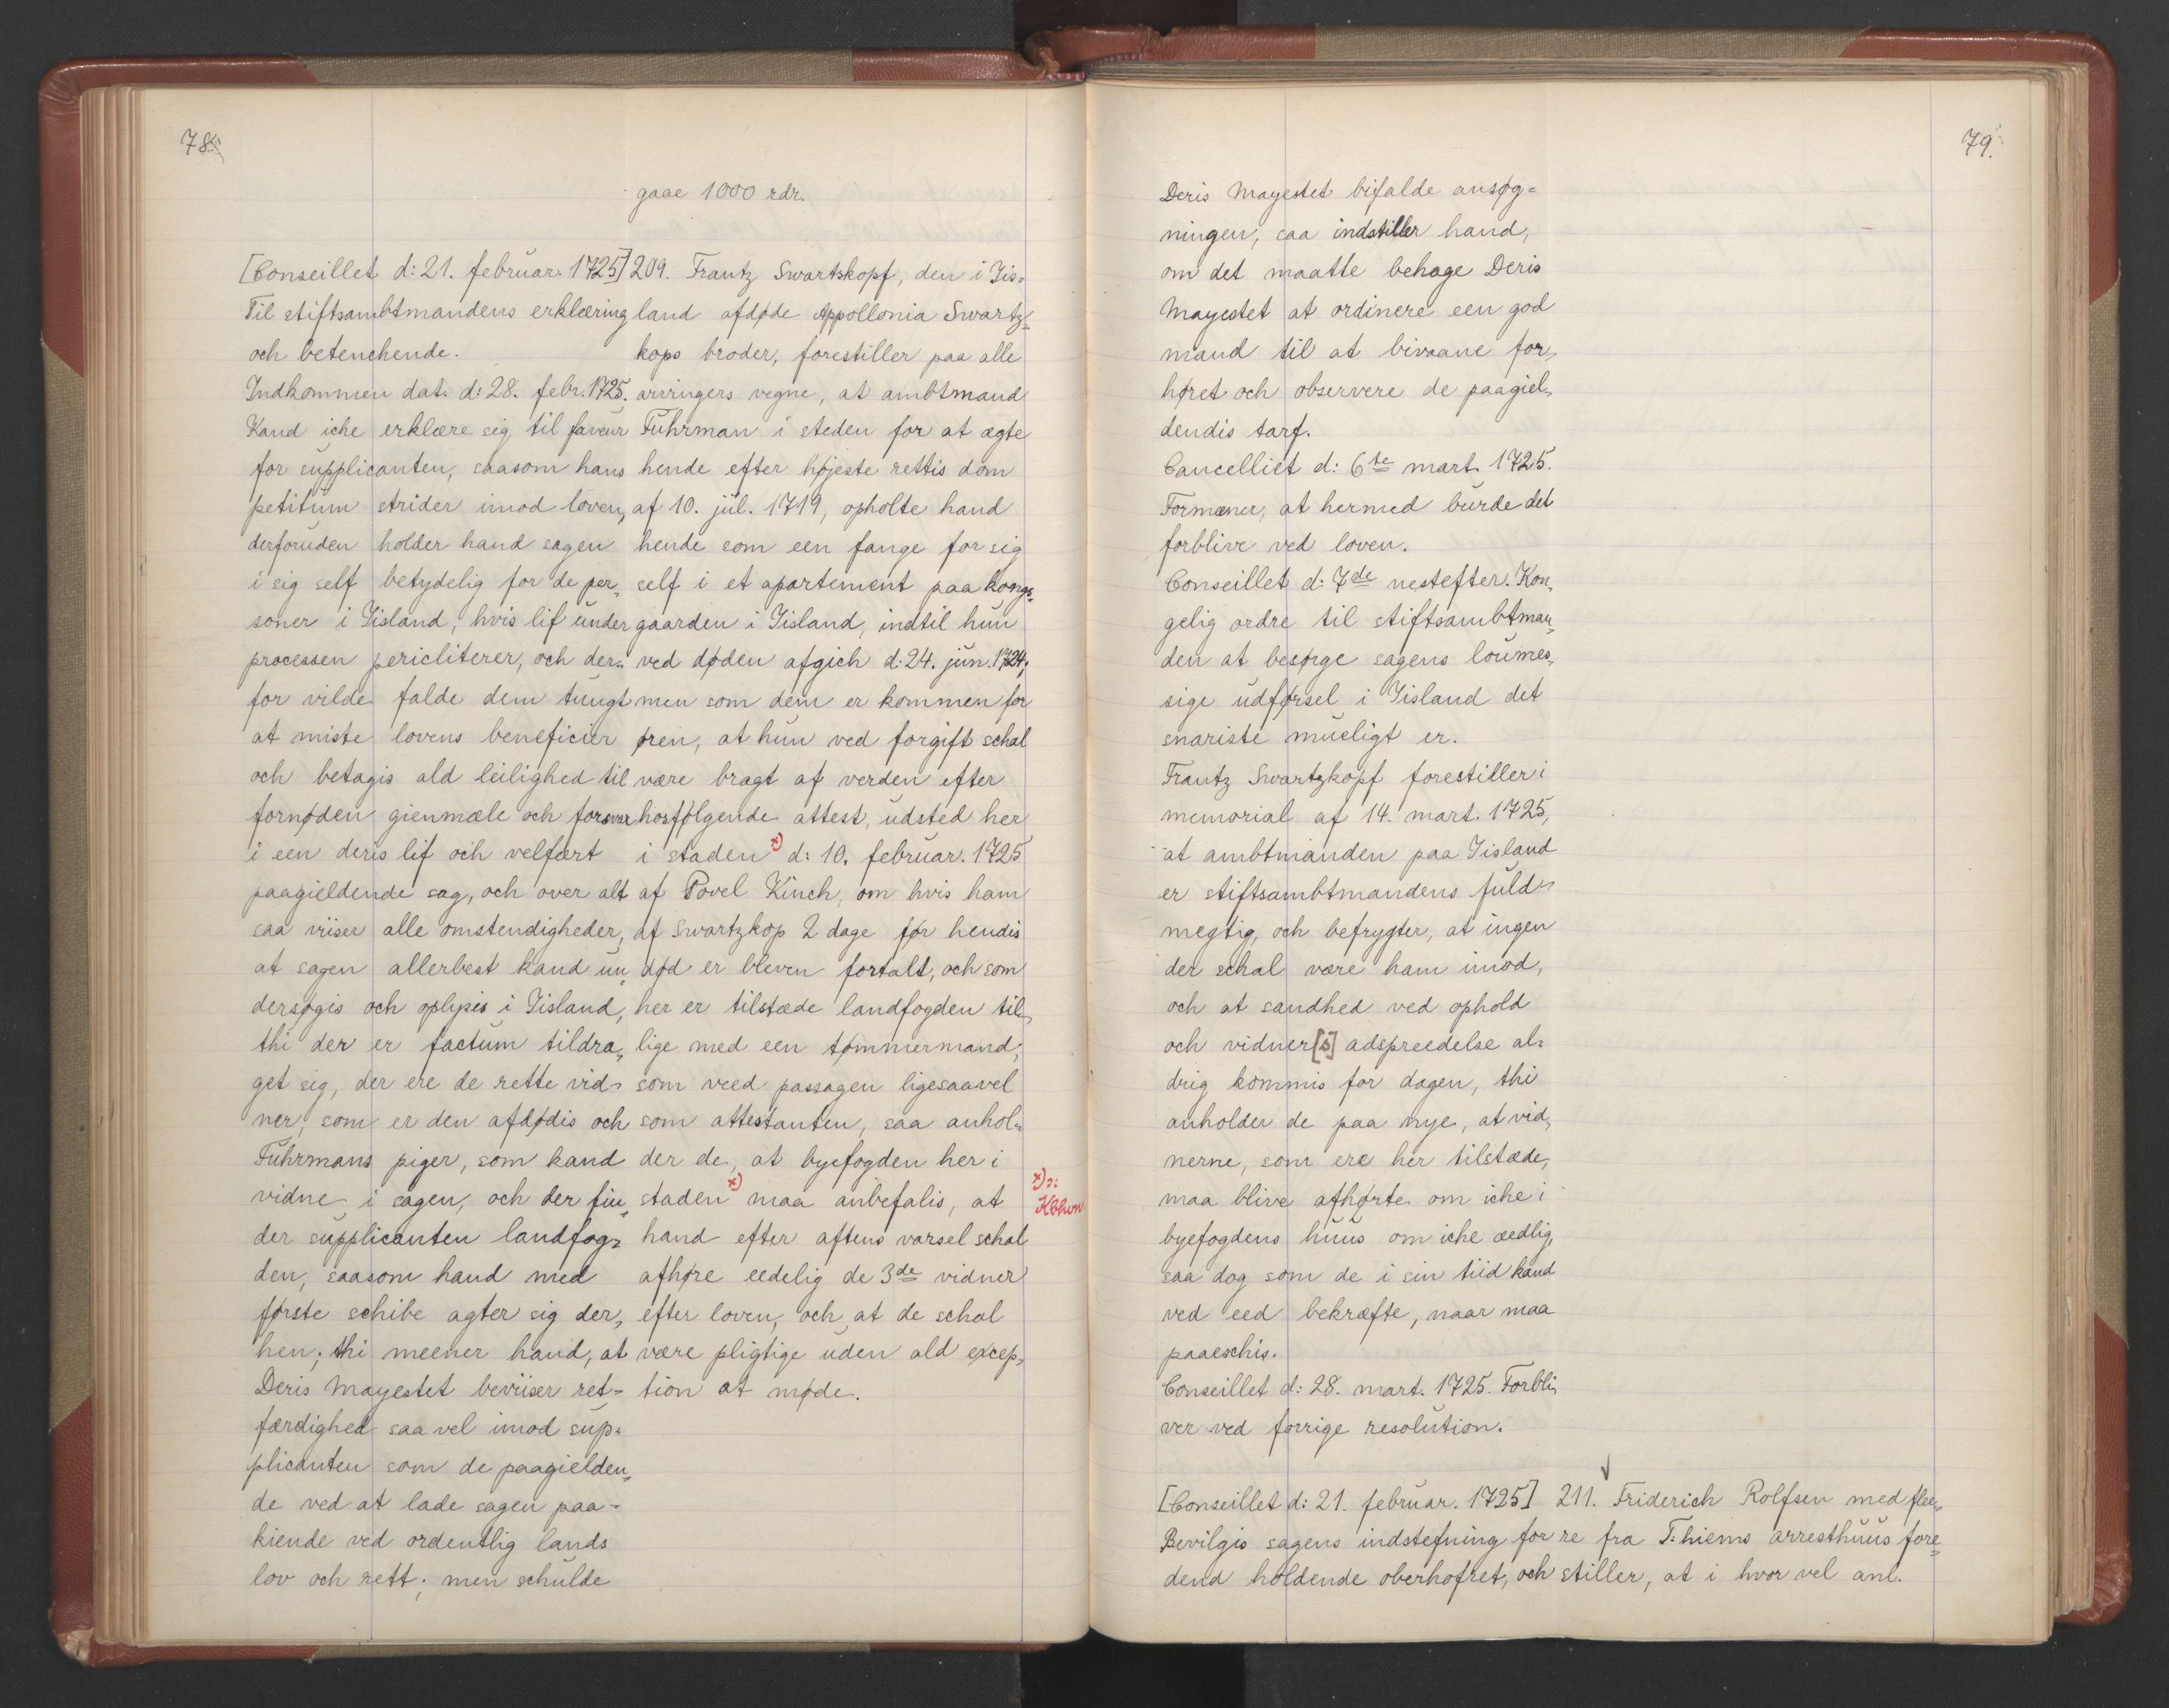 78.
gaae 1000 rdr.
[Conseillet d: 21. februar. 1725]
Til stiftsambtmandens erklæring
och betenchende.
Indkommen dat. d: 28. febr. 1725.
Kand iche erklære sig til faveur
for supplicanten, saasom hans
petitum strider imod loven,
derforuden holder hand sagen
i sig self betydelig for de per„
soner i Iisland, hvis lif under
processen pericliterer, och der„
for vilde falde dem tungt
at miste lovens beneficier
och betagis ald leilighed til
fornøden gienmæle och forsvar
i een deris lif och velfært
paagieldende sag, och over alt
saa viiser alle omstendigheder,
at sagen allerbest kand un„
dersøgis och oplyses i Iisland,
thi der er factum tildra„
get sig, der ere de rette vid-
ner, som er den afdødis och
Fuhrmans piger, som kand
vidne i sagen, och der fin„
der supplicanten landfog=
den, saasom hand med
første schibe agter sig der„
hen; thi meener hand, at
Deris Mayestet beviiser ret=
færdighed saa vel imod sup=
plicanten som de paagielden„
de ved at lade sagen paa-
kiende ved ordentlig lands
lov och rett; men schulde
209. Frantz Swartskopf, den i Iis=
land afdøde Appollonia Swartz=
kops broder, forestiller paa alle
arvingers vegne, at ambtmand
Fuhrman i steden for at ægte
hende efter højeste rettis dom
af 10. jul. 1719, opholte hand
hende som een fange for sig
self i et apartement paa kongs=
gaarden i Iisland, indtil hun
ved døden afgich d: 24. jun. 1724;
men som dem er kommen for
øren, at hun ved forgift schal
være bragt af verden efter
hosfølgende attest, udsted her
i staden x) d: 10. februar. 1725
af Povel Kinch, om hvis ham
af Swartzkop 2 dage før hendis
død er bleven fortalt, och som
her er tilstæde landfogden til„
lige med een tømmermand,
som veed passagen ligesaavel
som attestanten, saa anhol„
der de, at byefogden her i
staden x) maa anbefalis, at
x) ɔ:
Kbhvn.
hand efter aftens varsel schal
afhøre eedelig de 3de vidner
efter loven, och at de schal
være pligtige uden ald excep„
tion at møde.
79.
Deris Mayestet bifalde ansøg=
ningen, saa indstiller hand,
om det maatte behage Deris
Mayestet at ordinere een god
mand til at bivaane for„
høret och observere de paagiel„
dendis tarf.
Cancelliet d: 6te mart. 1725.
Formæner, at hermed burde det
forblive ved loven.
Conseillet d: 7de nestefter. Kon„
gelig ordre til stiftsambtman„
den at besørge sagens loumes„
sige udførsel i Iisland det
snariste mueligt er.
Frantz Swartzkopf forestiller i
memorial af 14. mart. 1725,
at ambtmanden paa Iisland
er stiftsambtmandens fuld-
megtig, och befrygter, at ingen
der schal være ham imod,
och at sandhed ved ophold
och vidner[s] adspreedelse al=
drig kommis for dagen, thi
anholder de paa nye, at vid„
nerne, som ere her tilstæde,
maa blive afhørte om iche i
byefogdens huus om iche eedlig,
saa dog som de i sin tiid kand
ved eed bekræfte, naar maa
paaeschis.
Conseillet d: 28. mart. 1725. Forbli„
ver ved forrige resolution.
[Conseillet d: 21. februar. 1725]
Bevilgis sagens indstefning for
dend holdende oberhofret, och
211. Friderich Rolfsen med flee„
re fra T: hiems arresthuus fore=
stiller, at i hvor vel anl.